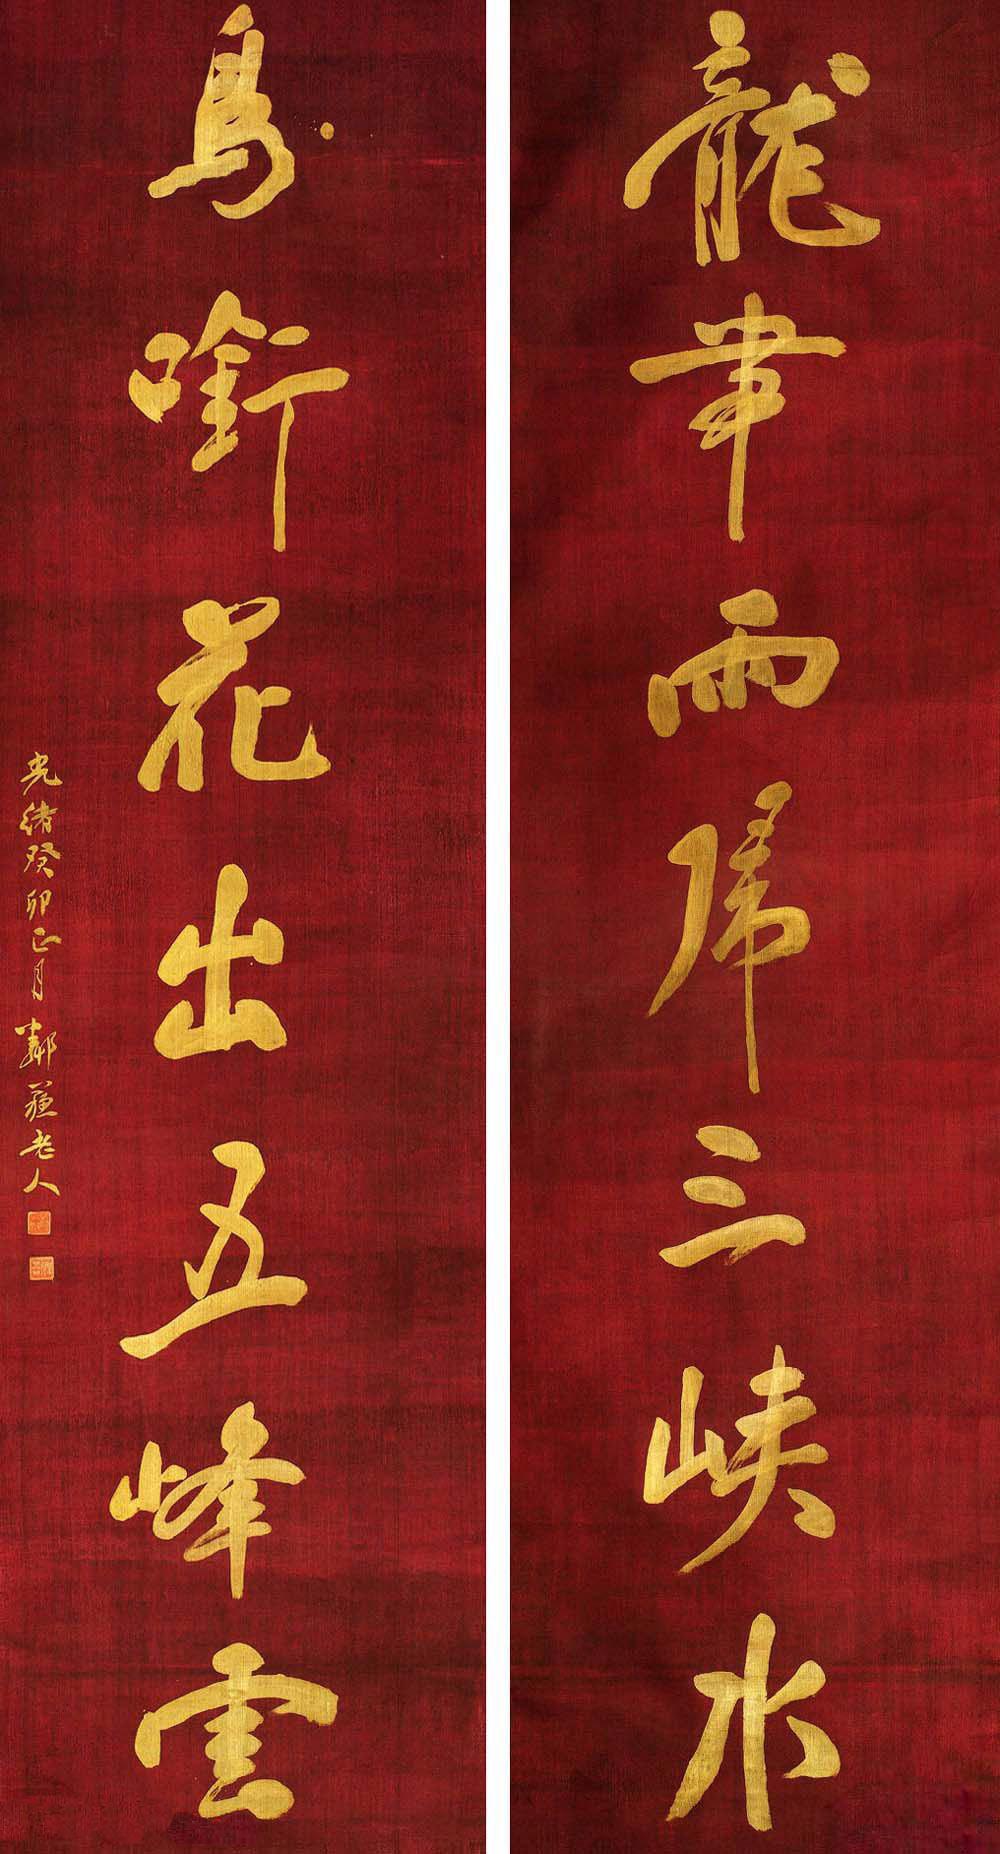 龍帶雨歸三峽水
鳥銜花出五峰雲
光緒癸卯正月鄰蘇老人